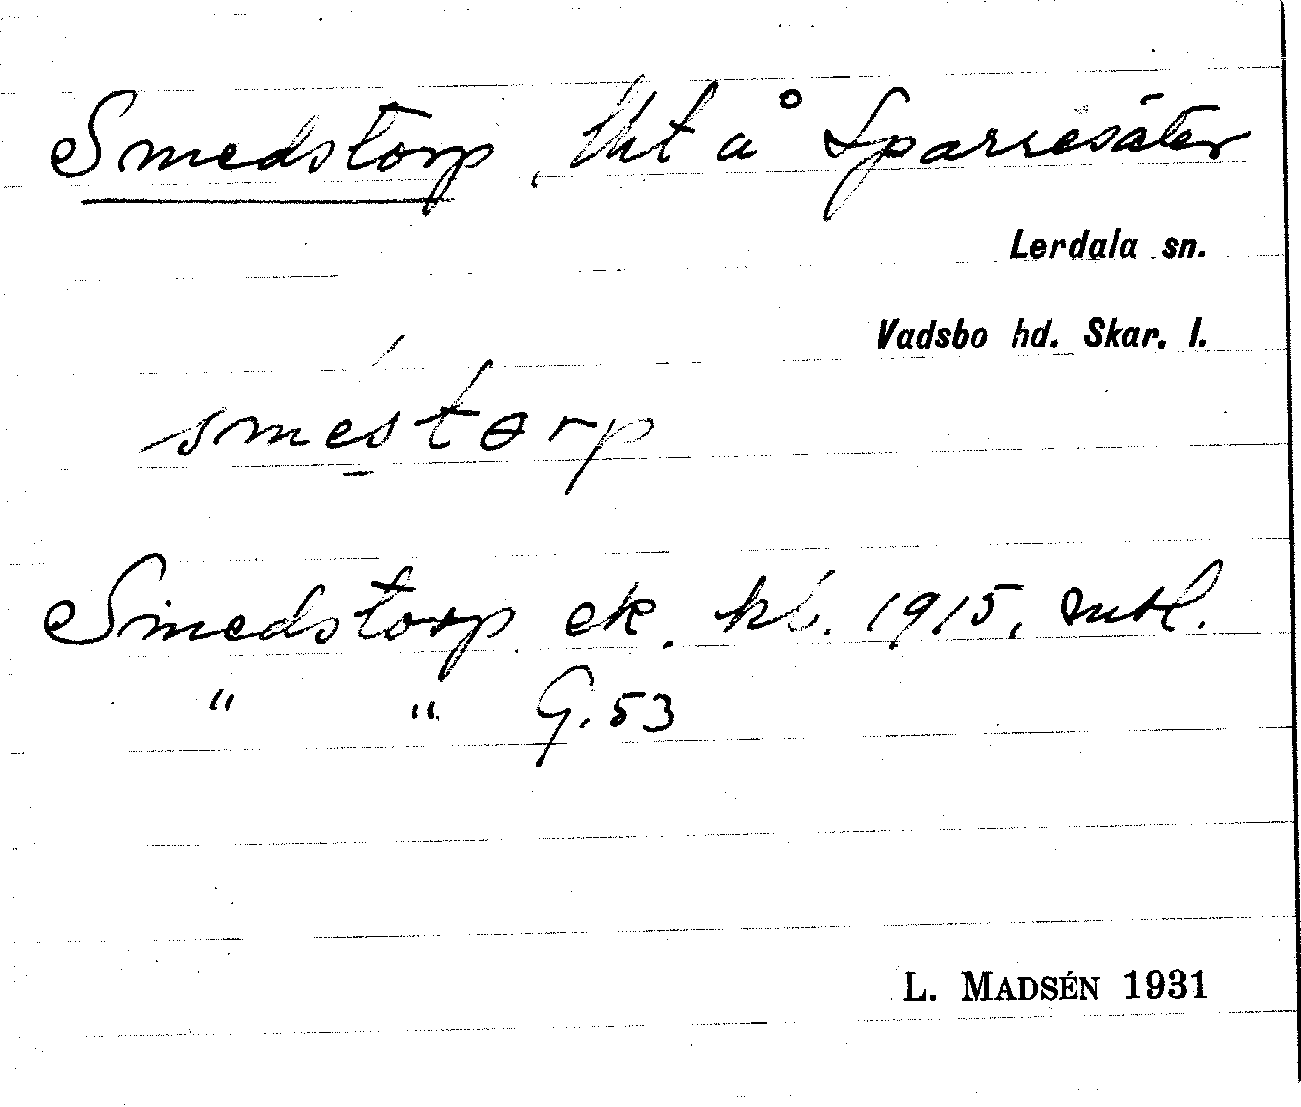 Smedstorp, lht å Sparresäter
Lerdala sn.
Vadsbo hd. Skar. l.
sméstɵrp
Smedstorp ek. kb. 1915, mtl.
" " G. 53
L. MADSÉN 1931